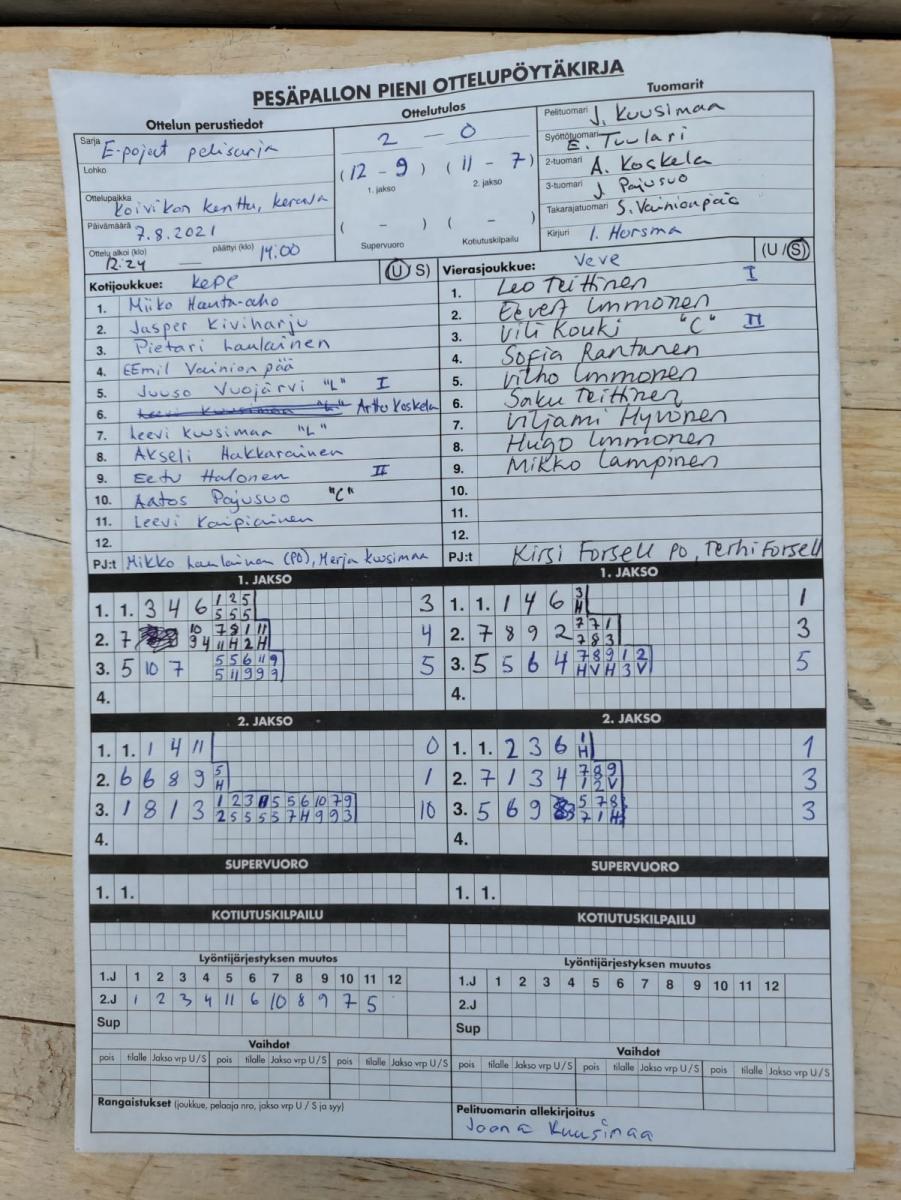 PESÄPALLON PIENI OTTELUPÖYTÄKIRJA
Ottelun perustiedot
Sarja E-pojat pelisarja
Lohko
Ottelupaikka Koivikon kenttä, Kerava
Päivämäärä 7.8.2021
Ottelu alkoi (klo) 12.24 — päättyi (klo) 14.00
Ottelutulos
2 - 0
(12 - 9) (11 - 7)
1. jakso 2. jakso
( - ) ( - )
Supervuoro Kotiutuskilpailu
Tuomarit
Pelituomari J. Kuusimaa
Syöttötuomari E. Tuulari
2-tuomari A. Koskela
3-tuomari J. Pajusuo
Takarajatuomari S. Vainionpää
Kirjuri I. Hursma
Kotijoukkue: KePe (U/S)
1. Miiko Hauta-aho
2. Jasper Kiviharju
3. Pietari Laulainen
4. EEmil Vainionpää
5. Juuso Vuojärvi "L" I
6. Arttu Koskela
7. Leevi Kuusimaa "L"
8. Akseli Hakkarainen
9. Eetu Halonen II
10. Aatos Pajusuo "C"
11. Leevi Kaipiainen
12.
PJ:t Mikko Laulainen (PO), Merja Kuusimaa
Vierasjoukkue: Veve (U/S)
1. Leo Teittinen I
2. Eevert Immonen
3. Vili Kouki "C" II
4. Sofia Rantanen
5. Vilho Immonen
6. Saku Teittinen
7. Viljami Hyvönen
8. Hugo Immonen
9. Mikko Lampinen
10.
11.
12.
PJ:t Kirsi Forsell PO, Terhi Forsell
1. JAKSO
1. 1. 3 4 6 1 2 5 3
5 5 5
2. 7 9 4 10 7 8 1 11 4
11 H 2 H
3. 5 10 7 5 5 6 11 9 5
5 11 9 9 9
4.
1. JAKSO
1. 1. 1 4 6 3 1
H
2. 7 8 9 2 2 7 7 1 3
7 8 3
3. 5 5 6 4 7 8 9 1 2 5
H V H 3 V
4.
2. JAKSO
1. 1. 1 4 11 0
2. 6 6 8 9 5 1
H
3. 1 8 1 3 1 2 3 5 5 6 10 7 9 10
2 5 5 5 5 7 H 9 9 3
4.
2. JAKSO
1. 1. 2 3 6 1 1
H
2. 7 1 3 4 7 8 9 3
1 2 V
3. 5 6 9 5 7 8 3
7 1 H
4.
SUPERVUORO
1. 1.
SUPERVUORO
1. 1.
KOTIUTUSKILPAILU
KOTIUTUSKILPAILU
Lyöntijärjestyksen muutos
1.J 1 2 3 4 5 6 7 8 9 10 11 12
2.J 1 2 3 4 11 6 10 8 9 7 5
Sup
Lyöntijärjestyksen muutos
1.J 1 2 3 4 5 6 7 8 9 10 11 12
2.J
Sup
Vaihdot
pois tilalle Jakso vrp U / S pois tilalle Jakso vrp U / S pois tilalle Jakso vrp U / S
Vaihdot
pois tilalle Jakso vrp U / S pois tilalle Jakso vrp U / S pois tilalle Jakso vrp U / S
Rangaistukset (joukkue, pelaaja nro, jakso vrp U / S ja syy)
Pelituomarin allekirjoitus
Joona Kuusimaa